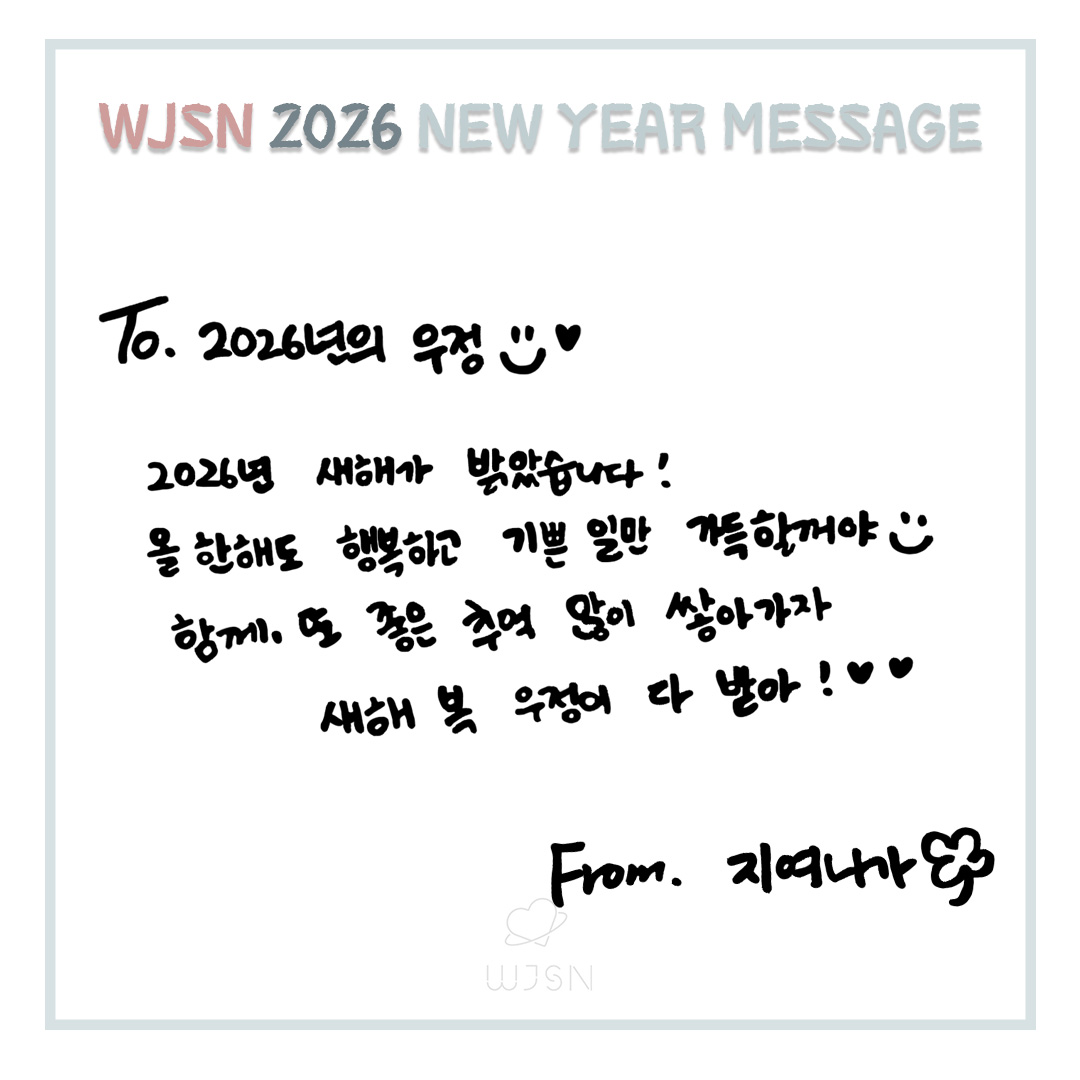 WJSN 2026 NEW YEAR MESSAGE
To. 2026년의 우정
2026년 새해가 밝았습니다!
올 한해도 행복하고 기쁜 일만 가득할꺼야
함께. 또 좋은 추억 많이 쌓아가자
새해 복 우정이 다 받아!
From. 지여니가
WJSN